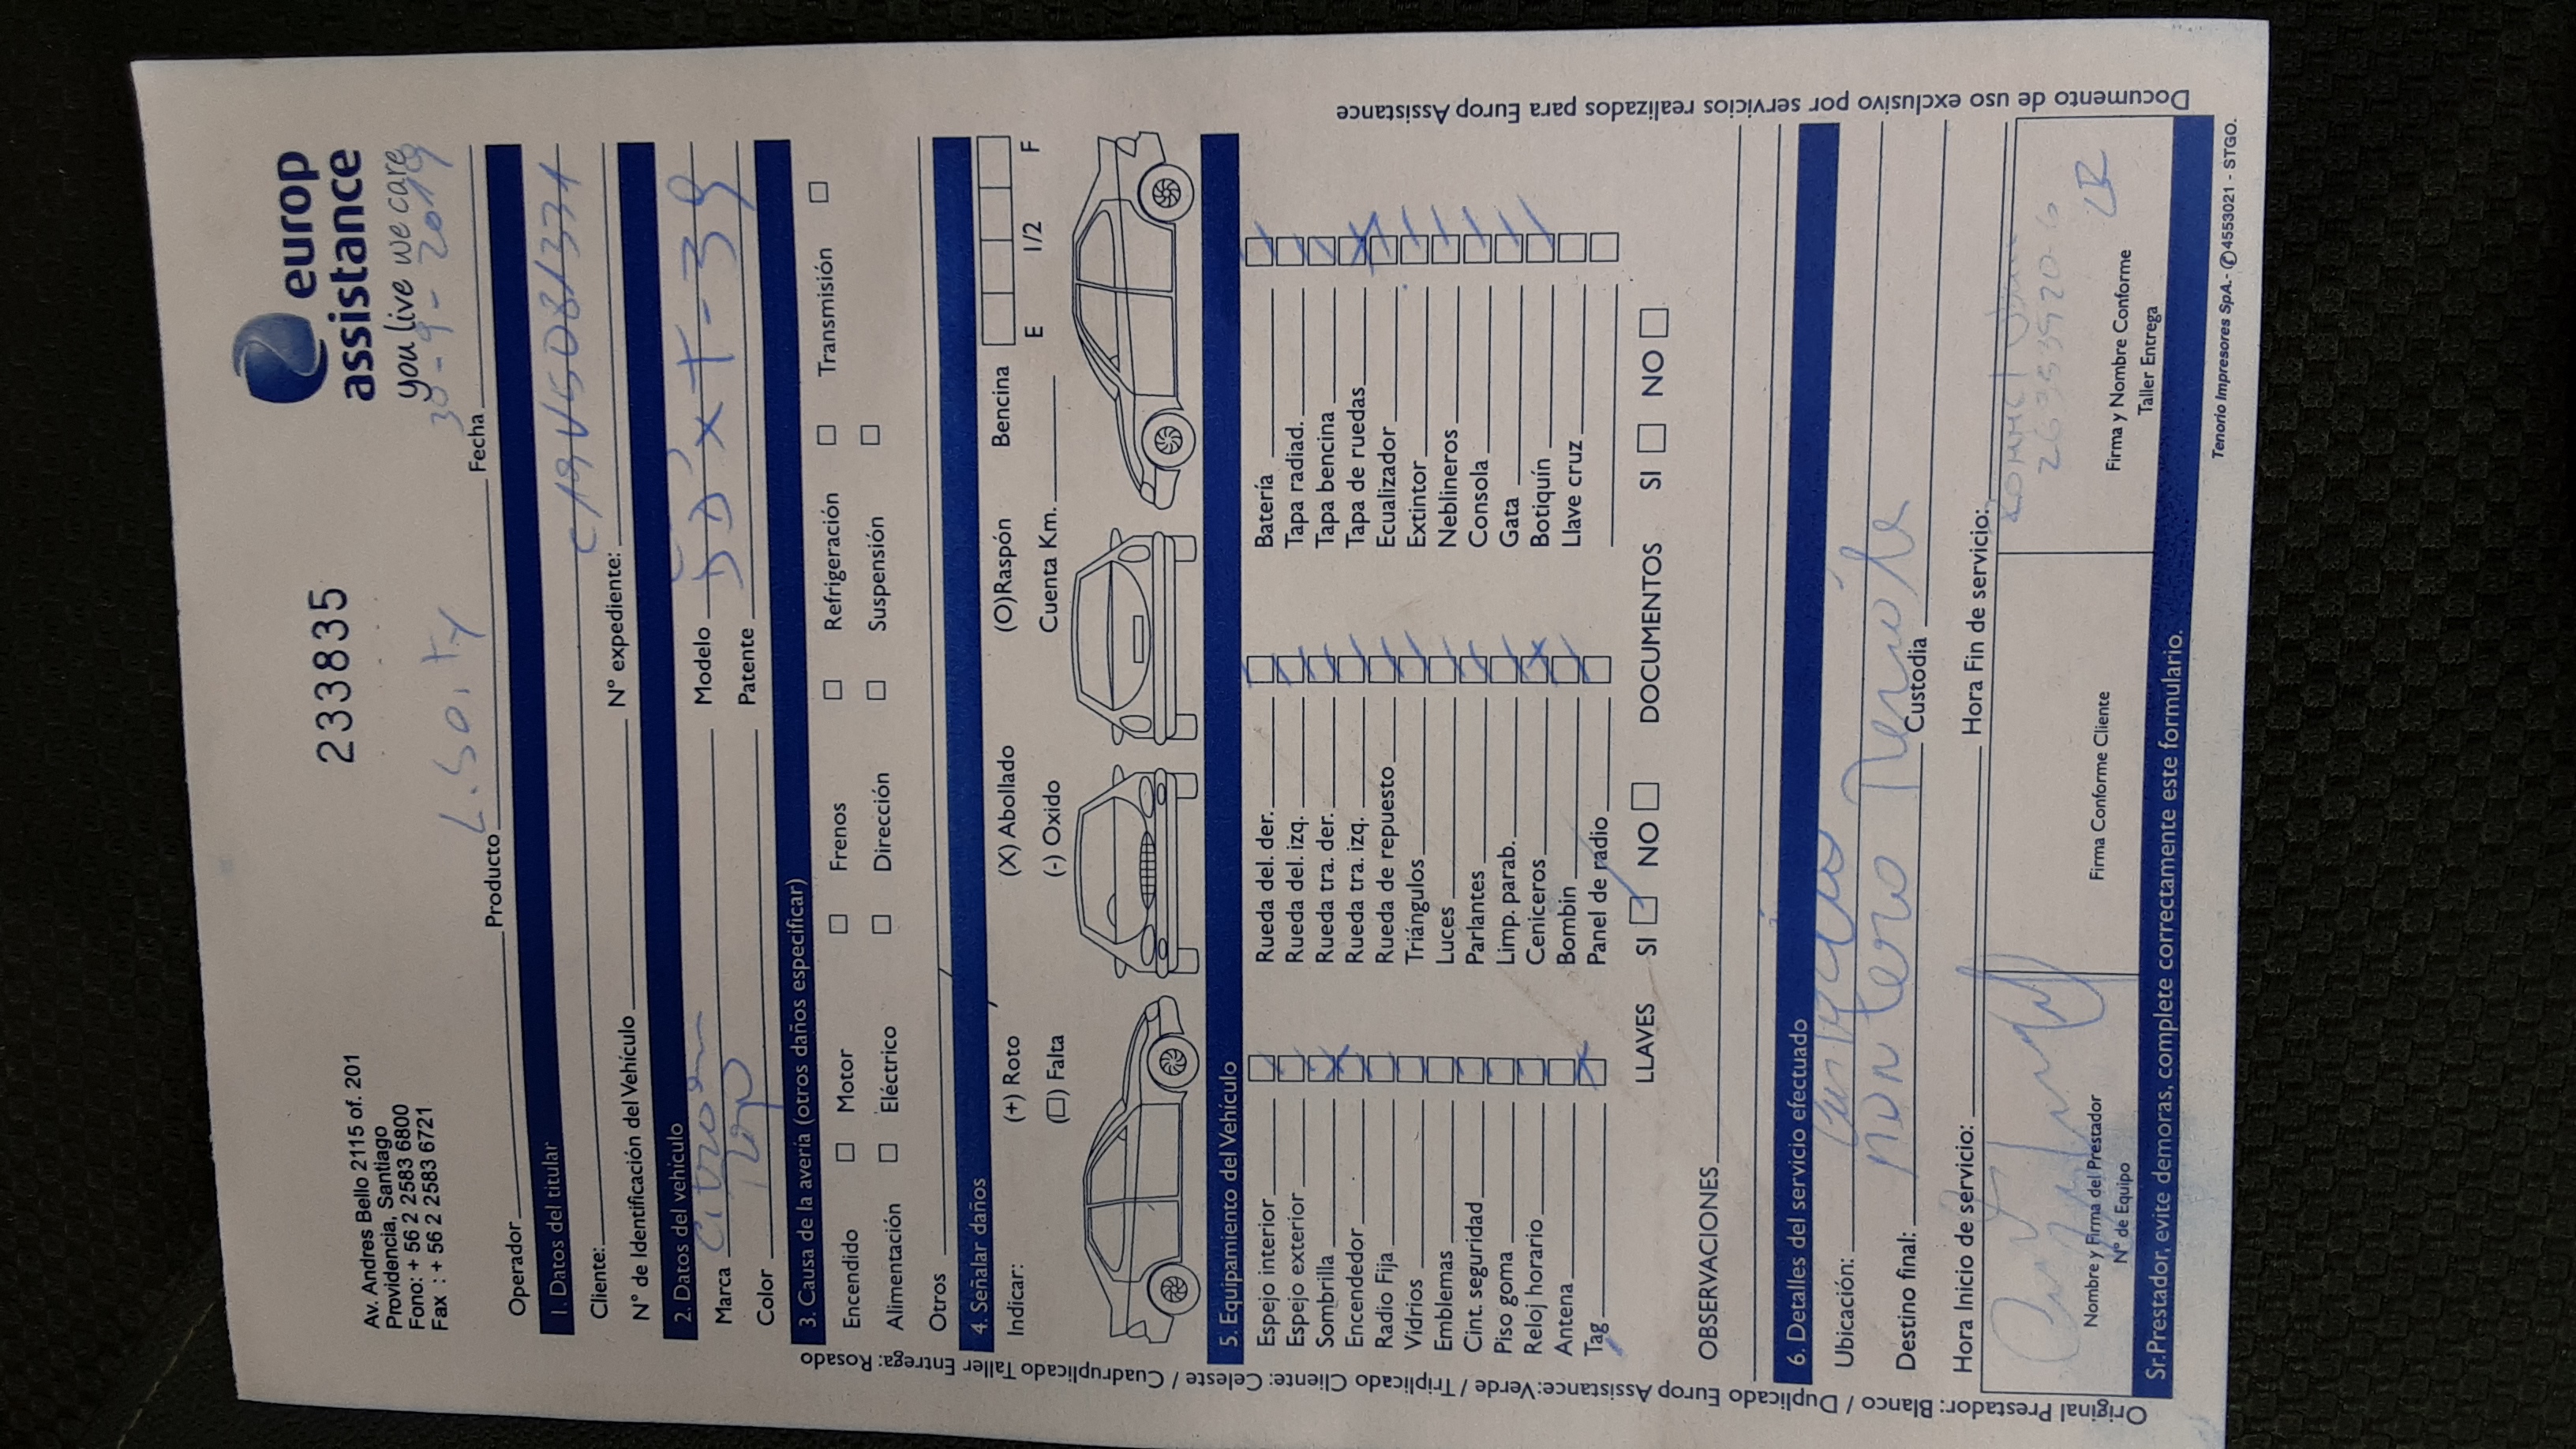 Av. Andres Bello 2115 of. 201
Providencia, Santiago
Fono: + 56 2 2583 6800
Fax : + 56 2 2583 6721
233835
europ
assistance
you live we care
Operador Producto Fecha 30-9-2019
1. Datos del titular
Cliente:
N° de Identificación del Vehículo N° expediente:
2. Datos del vehículo
Marca Citroen Modelo
Color Patente
3. Causa de la avería (otros daños especificar)
Encendido Motor Frenos Refrigeración Transmisión
Alimentación Eléctrico Dirección Suspensión
Otros
4. Señalar daños
Indicar: (+) Roto (X) Abollado (O)Raspón Bencina
(□) Falta (-) Oxido Cuenta Km. E 1/2 F
5. Equipamiento del Vehículo
Espejo interior Rueda del. der. Batería
Espejo exterior Rueda del. izq. Tapa radiad.
Sombrilla Rueda tra. der. Tapa bencina
Encendedor Rueda tra. izq. Tapa de ruedas
Radio Fija Rueda de repuesto Ecualizador
Vidrios Triángulos Extintor
Emblemas Luces Neblineros
Cint. seguridad Parlantes Consola
Piso goma Limp. parab. Gata
Reloj horario Ceniceros Botiquín
Antena Bombin Llave cruz
Tag Panel de radio
LLAVES SI NO DOCUMENTOS SI NO
OBSERVACIONES
6. Detalles del servicio efectuado
Ubicación:
Destino final: Montero Custodia
Hora Inicio de servicio: Hora Fin de servicio:
Nombre y Firma del Prestador
N° de Equipo
Firma Conforme Cliente
Firma y Nombre Conforme
Taller Entrega
Sr.Prestador, evite demoras, complete correctamente este formulario.
Tenorio Impresores SpA.- ✆4553021 - STGO.
Original Prestador: Blanco / Duplicado Europ Assistance:Verde / Triplicado Cliente: Celeste / Cuadruplicado Taller Entrega: Rosado
Documento de uso exclusivo por servicios realizados para Europ Assistance